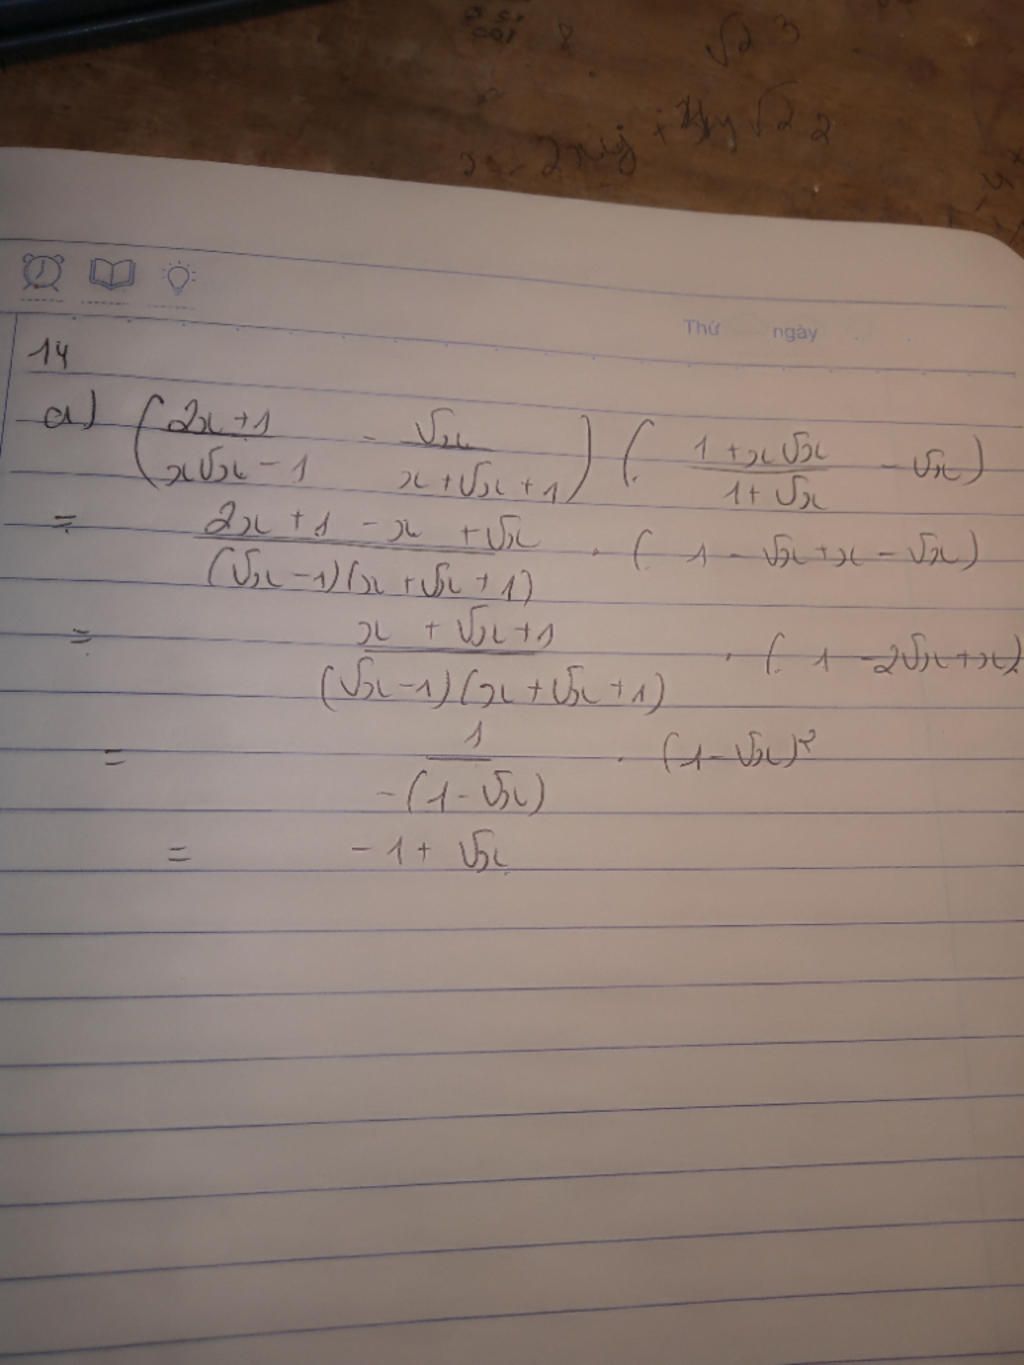 √2 3
Thứ ngày
14
a) (2x+1 / x√x - 1 - √x / x+√x+1) (1+x√x / 1+√x - √x)
= 2x+1-x+√x / (√x-1)(x+√x+1) . (1-√x+x-√x)
= x+√x+1 / (√x-1)(x+√x+1) . (1-2√x+x)
= 1 / -(1-√x) . (1-√x)²
= -1+√x